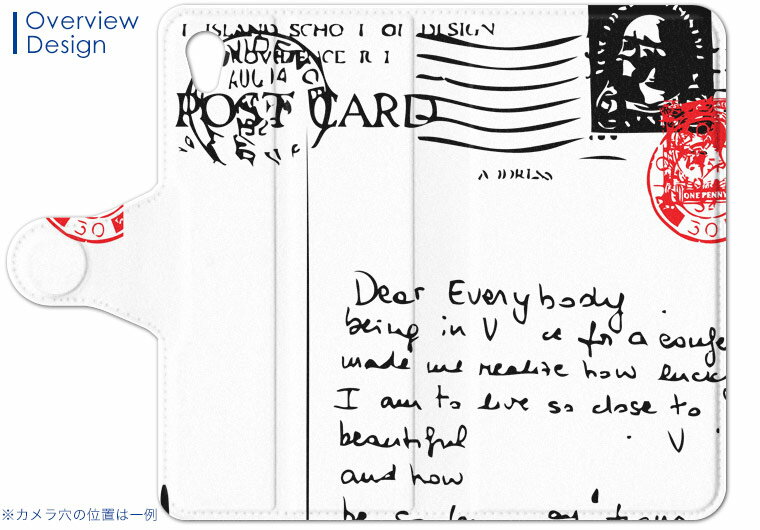 Overview
Design
I ISLAND SCHO I OI DESIGN
ROVIDENCE R I
AUG 14
POST CARD
ONE PENNY
30
30
Dear Everybody
being in V for a confe
made me realize how luck
I am to live so close to
beautiful V
and how
※カメラ穴の位置は一例